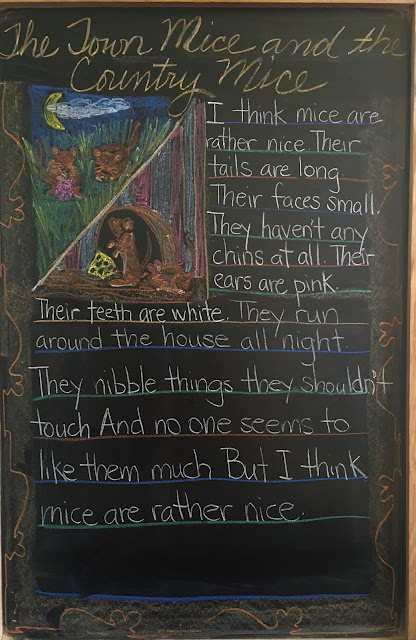 The Town Mice and the
Country Mice
I think mice are
rather nice. Their
tails are long
Their faces small.
They haven't any
chins at all. Their
ears are pink.
Their teeth are white. They run
around the house all night.
They nibble things they shouldn't
touch And no one seems to
like them much But I think
mice are rather nice.